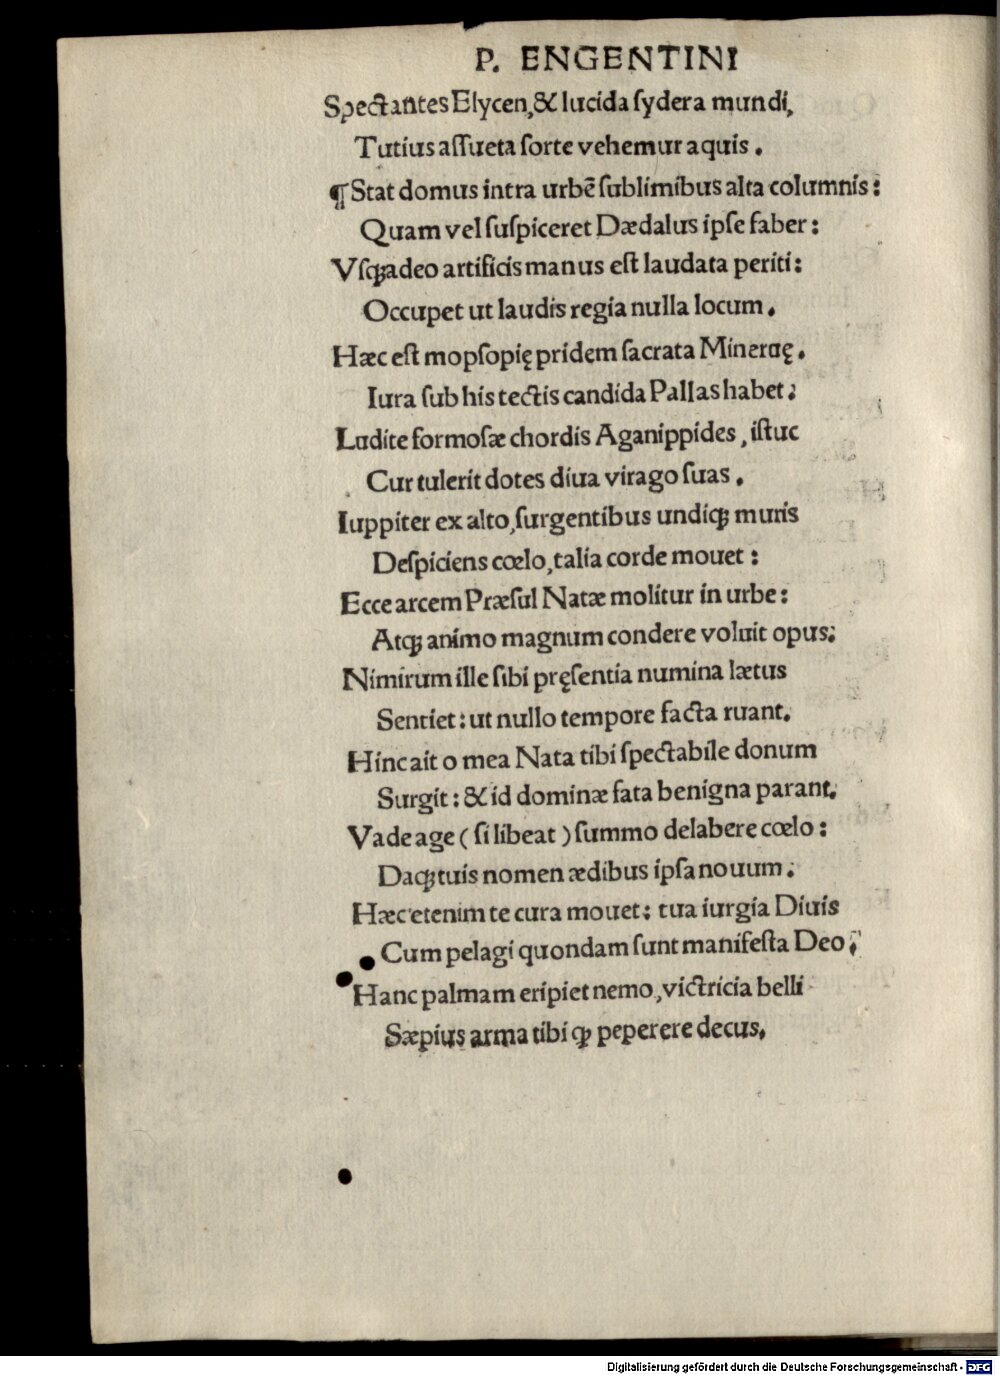 P. ENGENTINI
Spectantes Elycen, & lucida ſydera mundi,
Tutius aſſueta ſorte vehemur aquis.
¶ Stat domus intra urbē ſublimibus alta columnis:
Quam vel ſuſpiceret Dædalus ipſe faber:
Vſqꝫ adeo artificis manus eſt laudata periti:
Occupet ut laudis regia nulla locum.
Hæc eſt mopſopię pridem ſacrata Mineruę.
Iura ſub his tectis candida Pallas habet;
Ludite formoſæ chordis Aganippides, iſtuc
Cur tulerit dotes diua virago ſuas.
Iuppiter ex alto, ſurgentibus undiqꝫ muris
Deſpiciens cœlo, talia corde mouet:
Ecce arcem Præſul Natæ molitur in urbe:
Atqꝫ animo magnum condere voluit opus;
Nimirum ille ſibi pręſentia numina lætus
Sentiet: ut nullo tempore facta ruant.
Hinc ait o mea Nata tibi ſpectabile donum
Surgit: & id dominæ fata benigna parant.
Vade age (ſi libeat) ſummo delabere cœlo:
Daqꝫ tuis nomen ædibus ipſa nouum.
Hæc etenim te cura mouet: tua iurgia Diuis
Cum pelagi quondam ſunt manifeſta Deo;
Hanc palmam eripiet nemo, victricia belli
Sæpius arma tibi qꝫ peperere decus.
Digitalisierung gefördert durch die Deutsche Forschungsgemeinschaft - DFG